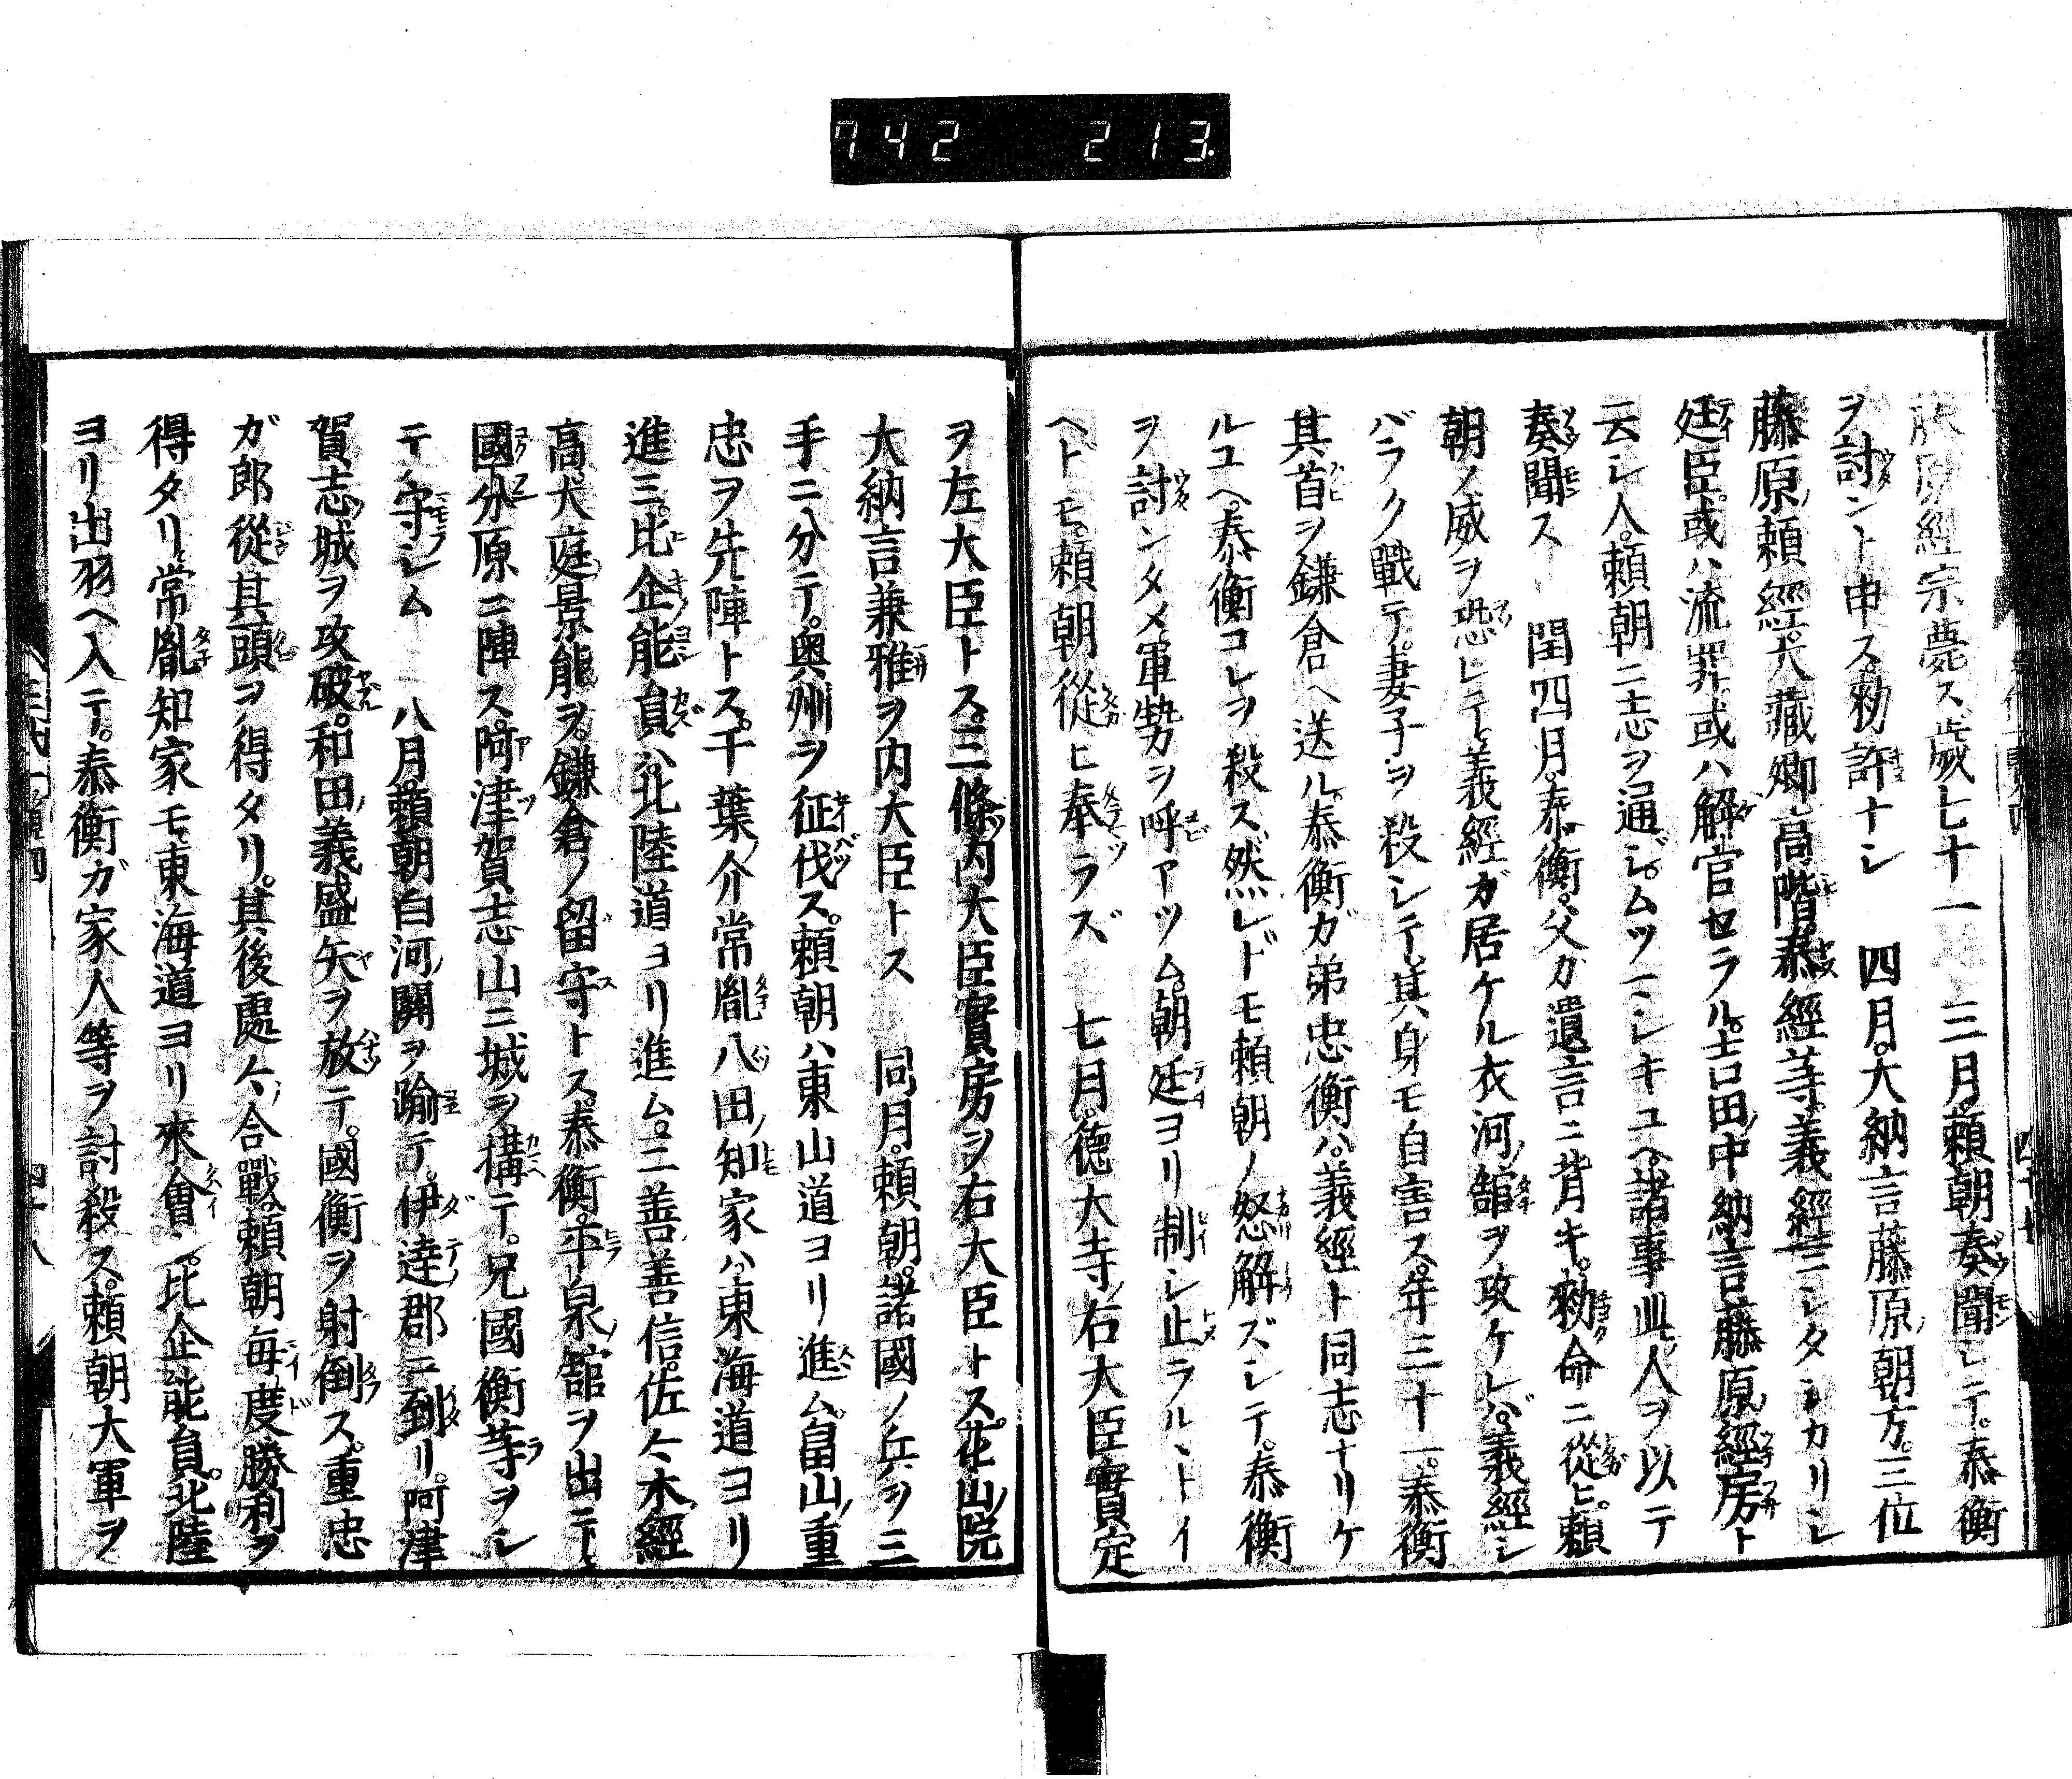 742 213.
藤原經宗薨ス歳七十一 三月頼朝奏聞シテ。泰衡
ヲ討ント申ス。勅許ナシ 四月。大納言藤原朝方。三位
藤原頼經。大藏卿高階泰經等。義經ニシタシカリシ
廷臣。或ハ流罪。或ハ解官セラル。吉田中納言藤原經房ト
云シ人。頼朝ニ志ヲ通ジ。ムツマシキユヘ。諸事此人ヲ以テ
奏聞ス 閏四月。泰衡。父ガ遺言ニ背キ。勅命ニ從ヒ。頼
朝ノ威ヲ恐レテ。義經ガ居ケル衣河舘ヲ攻ケレバ。義經シ
バラク戰テ。妻子ヲ殺シテ。其身モ自害ス。年三十一。泰衡
其首ヲ鎌倉ヘ送ル。泰衡ガ弟忠衡ハ。義經ト同志ナリケ
ルユヘ。泰衡コレヲ殺ス。然レドモ頼朝ノ怒解ズシテ。泰衡
ヲ討ンタメ。軍勢ヲ呼アツム。朝廷ヨリ制シ止ラルヽトイ
ヘドモ。頼朝從ヒ奉ラズ 七月。德大寺右大臣實定
ヲ左大臣トス。三條内大臣實房ヲ右大臣トス。花山院
大納言兼雅ヲ内大臣トス 同月。頼朝。諸國ノ兵ヲ三
手ニ分テ。奥州ヲ征伐ス。頼朝ハ東山道ヨリ進ム。畠山重
忠ヲ先陣トス。千葉介常胤八田知家ハ。東海道ヨリ
進ミ。比企能員ハ。北陸道ヨリ進ム。三善善信。佐々木經
高。大庭景能ヲ。鎌倉ノ留守トス。泰衡。平泉舘ヲ出テ。
國分原ニ陣ス。阿津賀志山ニ城ヲ構テ。兄國衡等ヲシ
テ守シム 八月。頼朝白河關ヲ踰テ。伊達郡ニ到リ。阿津
賀志城ヲ攻破。和田義盛矢ヲ放テ。國衡ヲ射倒ス。重忠
ガ郎從其頭ヲ得タリ。其後處々合戰。頼朝毎度勝利ヲ
得タリ。常胤知家モ。東海道ヨリ來會。比企能員。北陸
ヨリ出羽ヘ入テ。泰衡ガ家人等ヲ討殺ス。頼朝大軍ヲ